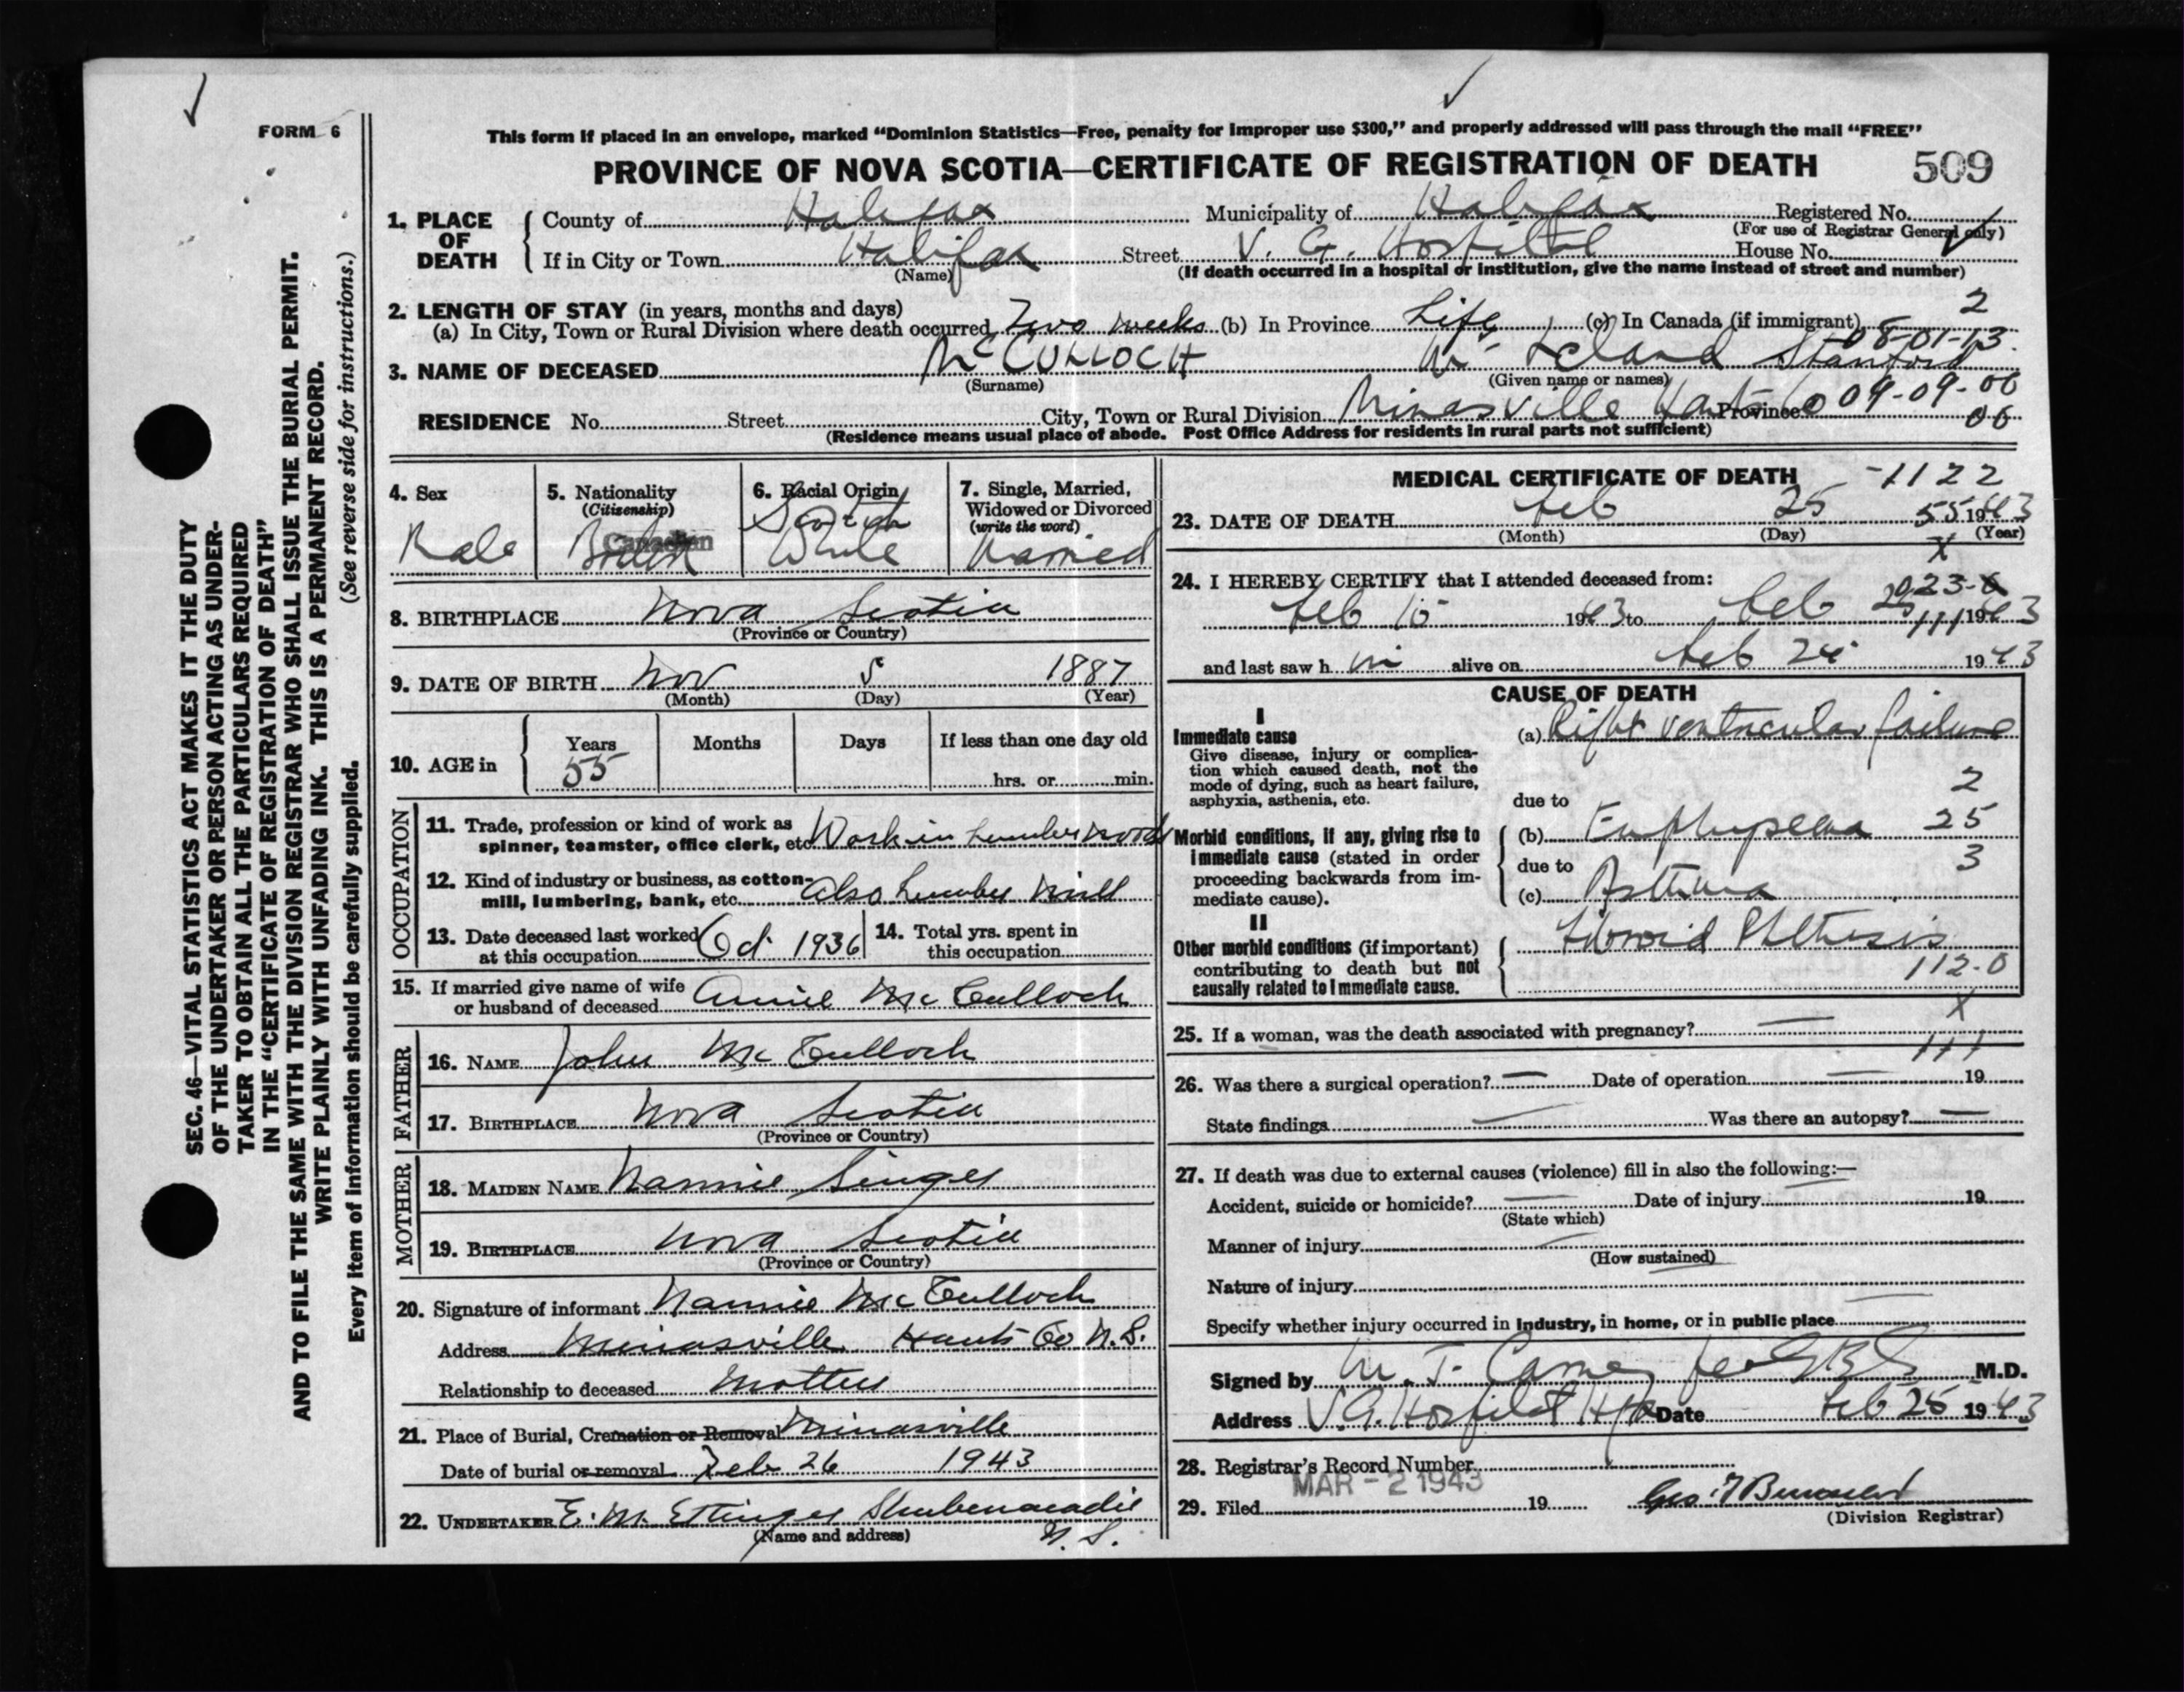 FORM 6
This form if placed in an envelope, marked "Dominion Statistics—Free, penalty for improper use $300," and properly addressed will pass through the mail "FREE"
PROVINCE OF NOVA SCOTIA—CERTIFICATE OF REGISTRATION OF DEATH 509
SEC. 46—VITAL STATISTICS ACT MAKES IT THE DUTY
OF THE UNDERTAKER OR PERSON ACTING AS UNDER-
TAKER TO OBTAIN ALL THE PARTICULARS REQUIRED
IN THE "CERTIFICATE OF REGISTRATION OF DEATH"
AND TO FILE THE SAME WITH THE DIVISION REGISTRAR WHO SHALL ISSUE THE BURIAL PERMIT.
WRITE PLAINLY WITH UNFADING INK. THIS IS A PERMANENT RECORD.
Every item of information should be carefully supplied. (See reverse side for instructions.)
1. PLACE OF DEATH
County of Halifax Municipality of Halifax Registered No.
(For use of Registrar General only)
If in City or Town Halifax Street V. G. Hospital House No.
(Name) (If death occurred in a hospital or institution, give the name instead of street and number)
2. LENGTH OF STAY (in years, months and days) 2
(a) In City, Town or Rural Division where death occurred Two weeks (b) In Province Life (c) In Canada (if immigrant) 08-01-13.
3. NAME OF DECEASED McCULLOCH Wm Leland Stanford
(Surname) (Given name or names)
RESIDENCE No. Street City, Town or Rural Division Minasville Hants Co Province 09-09-00
00
(Residence means usual place of abode. Post Office Address for residents in rural parts not sufficient)
4. Sex Male
5. Nationality (Citizenship) Canadian
6. Racial Origin Scotch White
7. Single, Married, Widowed or Divorced (write the word) Married
8. BIRTHPLACE Nova Scotia
(Province or Country)
9. DATE OF BIRTH Nov 5 1887
(Month) (Day) (Year)
10. AGE in Years 55 Months Days If less than one day old
hrs. or min.
OCCUPATION
11. Trade, profession or kind of work as spinner, teamster, office clerk, etc. Work in Lumber woods
12. Kind of industry or business, as cotton-mill, lumbering, bank, etc. Also Lumber Mill
13. Date deceased last worked at this occupation Oct 1936
14. Total yrs. spent in this occupation
15. If married give name of wife or husband of deceased Annie McCulloch
FATHER
16. NAME John McCulloch
17. BIRTHPLACE Nova Scotia
(Province or Country)
MOTHER
18. MAIDEN NAME Nannie Singer
19. BIRTHPLACE Nova Scotia
(Province or Country)
20. Signature of informant Nannie McCulloch
Address Minasville Hants Co N.S.
Relationship to deceased Mother
21. Place of Burial, Cremation or Removal Minasville
Date of burial or removal Feb 26 1943
22. UNDERTAKER E. M. Ettinger Shubenacadie
(Name and address) N.S.
MEDICAL CERTIFICATE OF DEATH -1122
23. DATE OF DEATH Feb 25 55 1943
(Month) (Day) (Year)
X
24. I HEREBY CERTIFY that I attended deceased from: 023-0
Feb 15 1943 to Feb 25 111 1943
and last saw h im alive on Feb 24 1943
CAUSE OF DEATH
I
Immediate cause (a) Right Ventricular failure
Give disease, injury or complica-
tion which caused death, not the
mode of dying, such as heart failure, 2
asphyxia, asthenia, etc. due to
Morbid conditions, if any, giving rise to (b) Emphysema 25
immediate cause (stated in order due to 3
proceeding backwards from im- (c) Asthma
mediate cause).
II
Other morbid conditions (if important) Fibroid Phthisis
contributing to death but not 112-0
causally related to immediate cause.
X
25. If a woman, was the death associated with pregnancy? —
111
26. Was there a surgical operation? — Date of operation — 19
State findings — Was there an autopsy? —
27. If death was due to external causes (violence) fill in also the following:—
Accident, suicide or homicide? — Date of injury 19
(State which)
Manner of injury
(How sustained)
Nature of injury
Specify whether injury occurred in industry, in home, or in public place
Signed by M. T. M.D.
Address V.G. Hospital Hfx Date Feb 25 1943
28. Registrar's Record Number
29. Filed MAR - 2 1943 19
(Division Registrar)